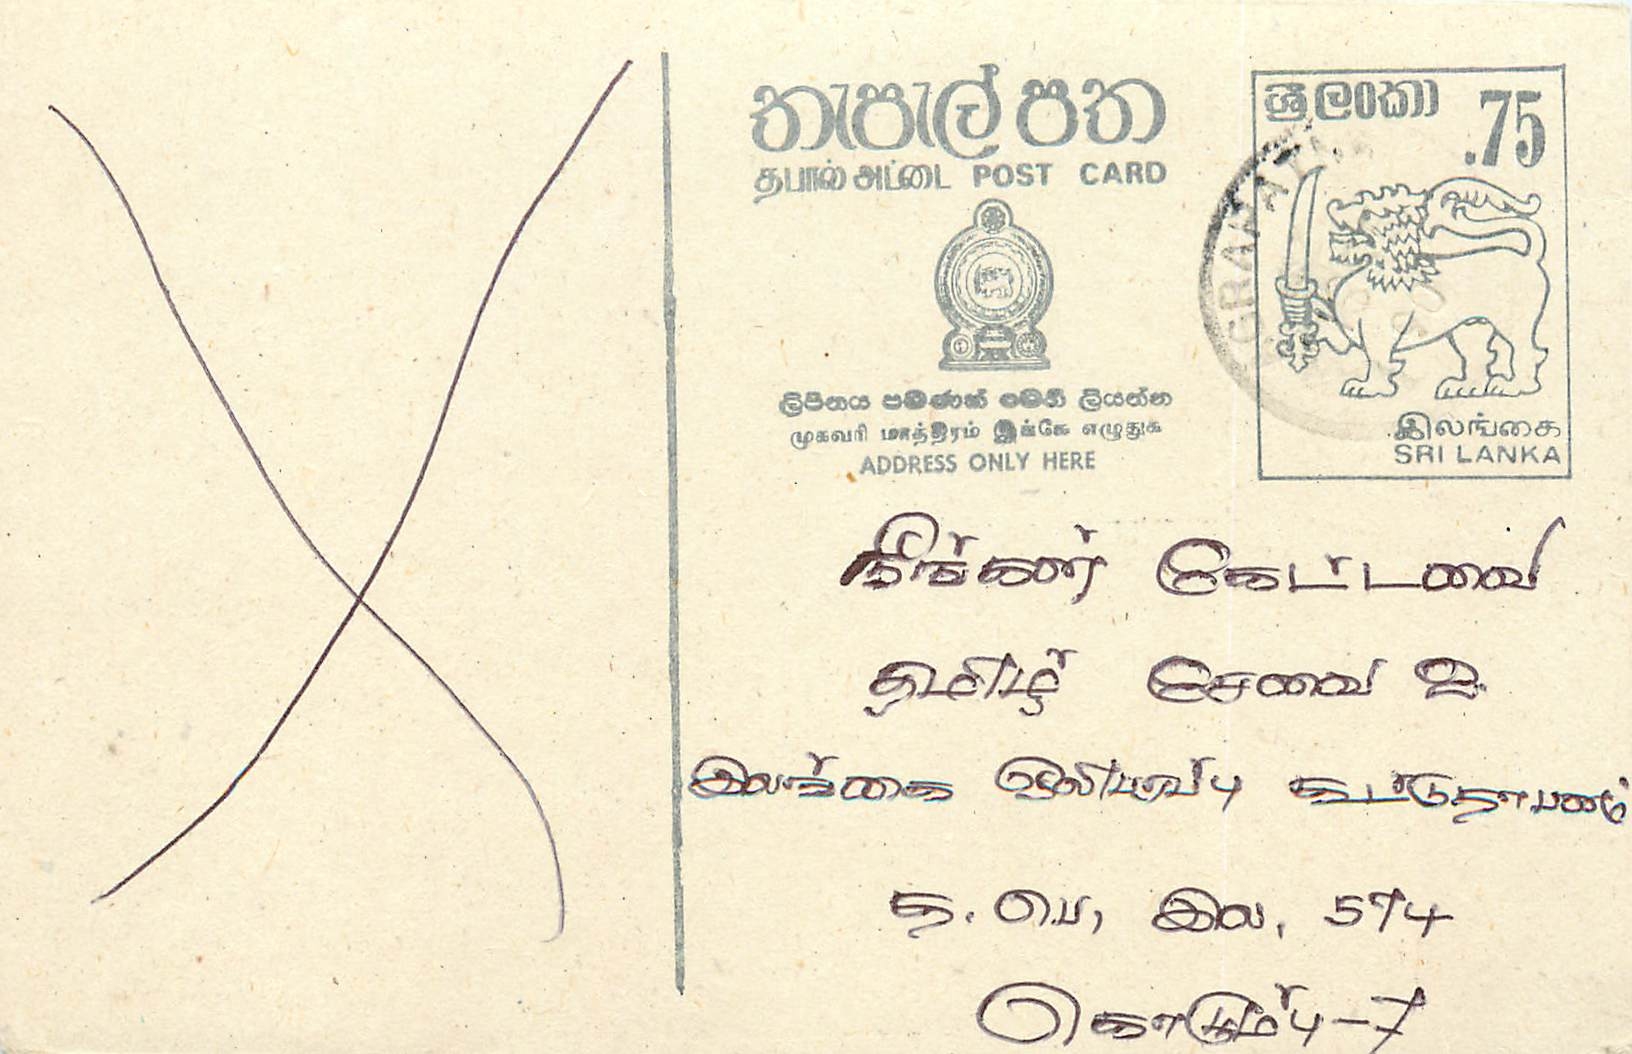 තැපැල් පත
தபால் அட்டை POST CARD
ශ්‍රී ලංකා
.75
ලිපිනය පමණක් මෙහි ලියන්න
முகவரி மாத்திரம் இங்கே எழுதுக
ADDRESS ONLY HERE
இலங்கை
SRI LANKA
நீங்கள் கேட்டவை
தமிழ் சேவை 2
இலங்கை ஒலிபரப்பு
த. பெ, இல, 574
கொழும்பு-7